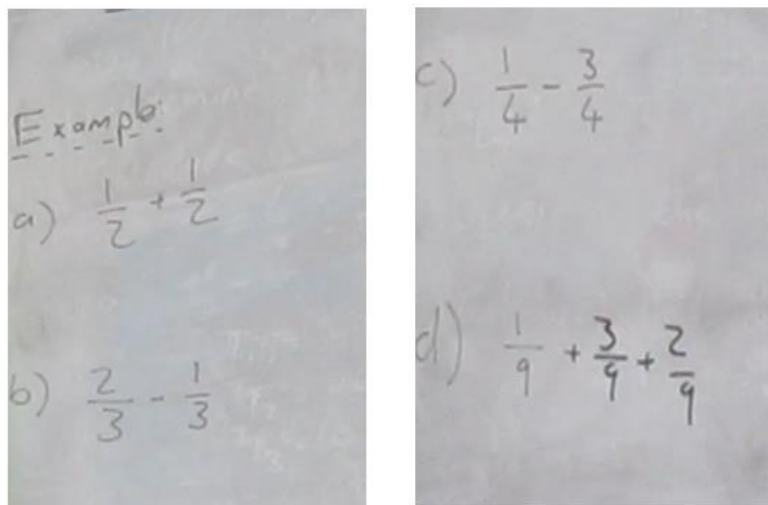 Example:
a) 1/2 + 1/2
b) 2/3 - 1/3
c) 1/4 - 3/4
d) 1/9 + 3/9 + 2/9